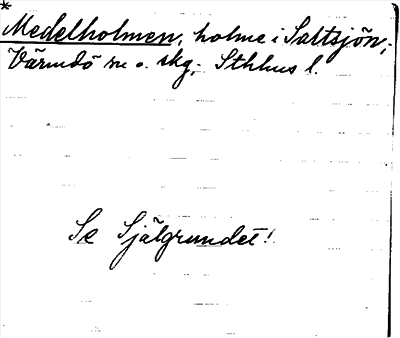 *
Medelholmen, holme i Saltsjön,
Värmdö sn o. skg, Sthlms l.
Se Själgrundet!